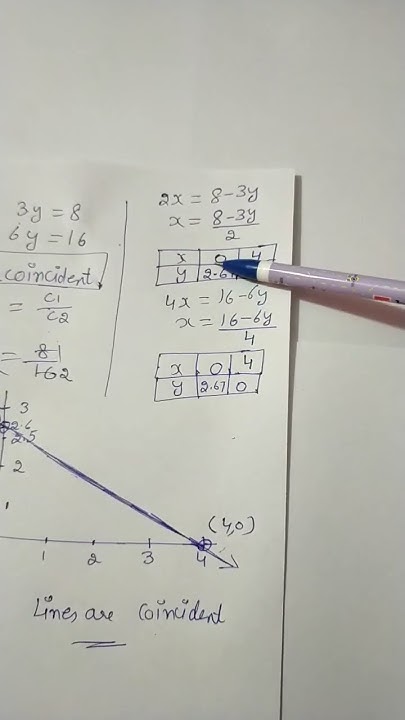 3y = 8
6y = 16
coincident
= c1/c2
= 8 1/16 2
2x = 8-3y
x = 8-3y/2
x 0 4
y 2.67
4x = 16-6y
x = 16-6y/4
x 0 4
y 2.67 0
3
2.6
2.5
2
(4,0)
1 2 3 4
Lines are coincident